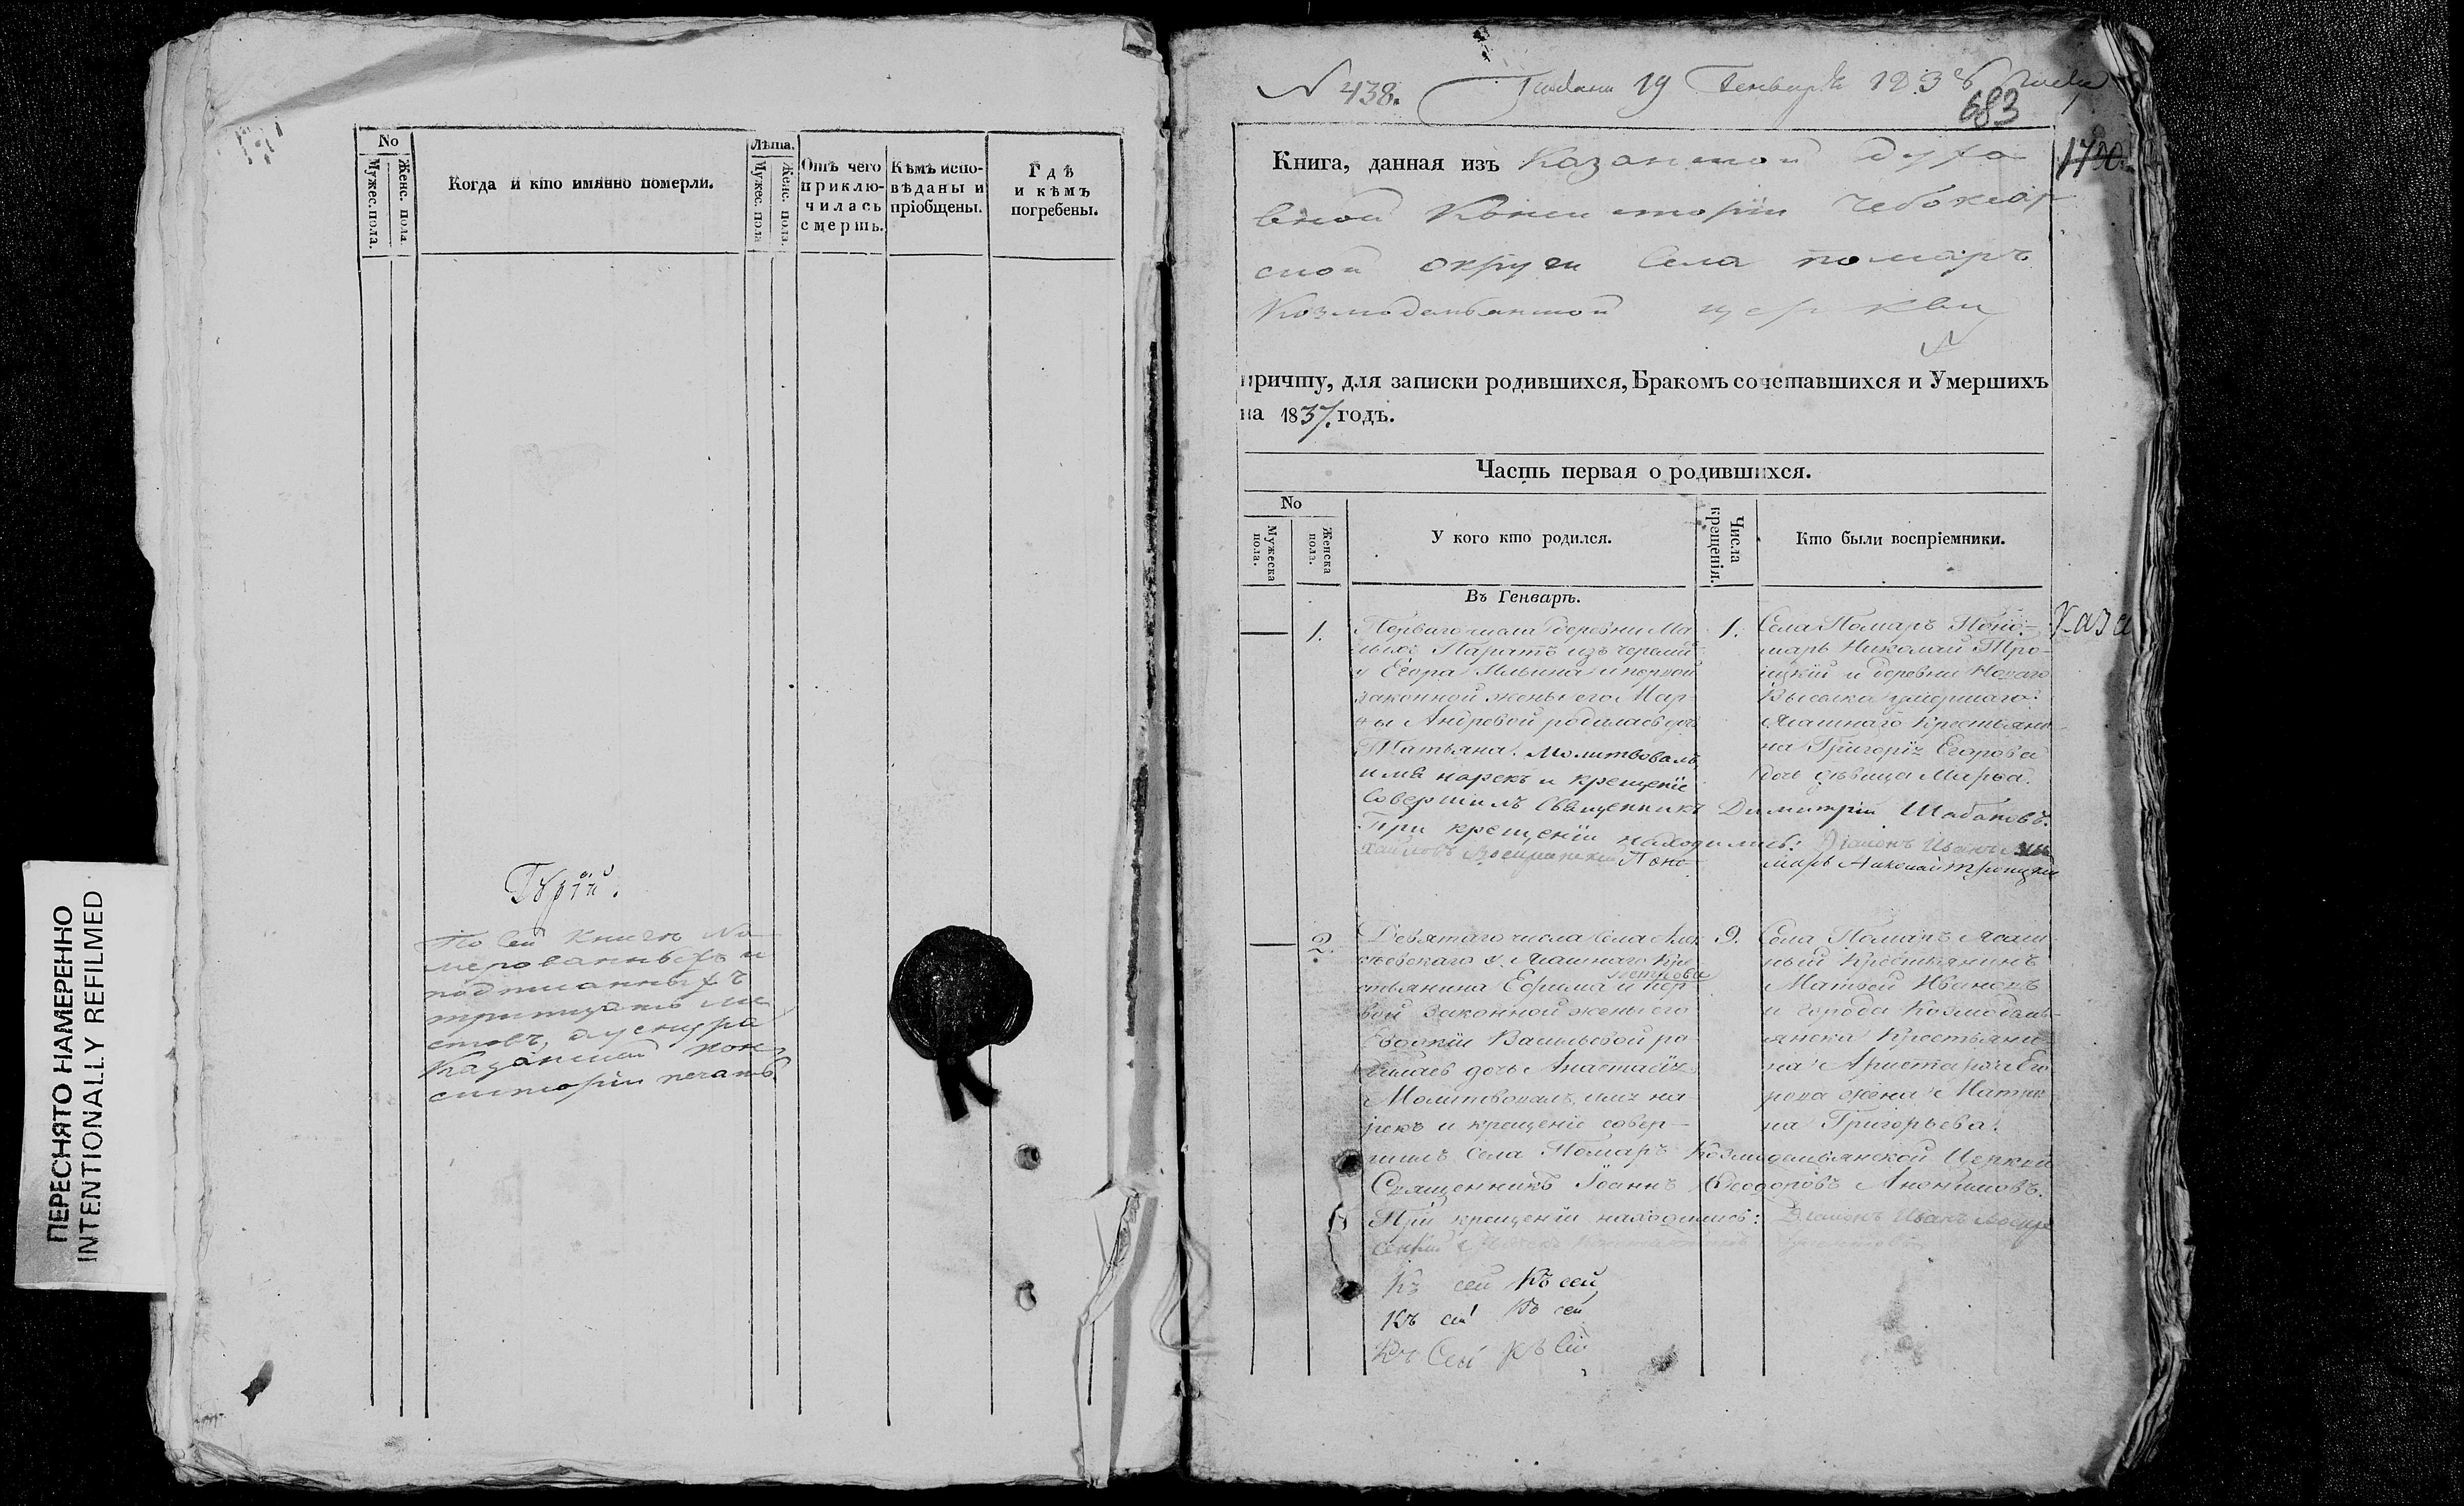 ПЕРЕСНЯТО НАМЕРЕННО
INTENTIONALLY REFILMED
No
Мужес. пола.
Женс. пола
Когда и кто имянно померли.
Лѣта.
Мужес. пола
Женс. пола.
Отъ чего
приклю-
чилась
смерть.
Кѣмъ испо-
вѣданы и
пріобщены.
Гдѣ
и кѣмъ
погребены.
По сей книгѣ
подписанныхъ
Казанской кон
систоріи печать.
N 438.
19 Генваря
683
Книга, данная изъ Казанской духо
вной Консисторіи Чебоксар
ской округи Села Помаръ
Козмодемьянской церкви
причту, для записки родившихся, Бракомъ сочетавшихся и Умершихъ
на 1837. годъ.
Часть первая о родившихся.
No
Мужеска
пола.
Женска
пола.
У кого кто родился.
Числа
крещенія.
Кто были воспріемники.
Въ Генварѣ.
1.
Перваго числа деревни Ма
лыхъ Паратъ изъ черемисъ
у Егора Ильина и первой
законной жены его Мар-
ѳы Андреевой родилась дочь
Татьяна. Молитвовалъ
имя нарекъ и крещеніе
Совершилъ Священникъ Димитрій Шабановъ.
При крещеніи находились: Діаконъ Иванъ
Поно-
марь Николай Троицкій
1.
Села Помаръ Поно-
марь Николай Тро-
ицкій и деревни Новаго
Выселка умершаго
Ясашнаго Крестьяни-
на Григорія Егорова
дочь дѣвица Марѳа.
Каза
2.
Девятаго числа Села Але
ксѣевскаго у Ясашнаго Кре
стьянина Ефрема и пер
вой Законной жены его
Евдокіи Васильевой ро-
дилась дочь Анастасія
Молитвовалъ, имя на-
рекъ и крещеніе совер-
шилъ Села Помаръ Козмодемьянской Церкви
Священникъ Іоаннъ Ѳеодоровъ Анонимовъ.
При крещеніи находились: Діаконъ Иванъ Воскре
сенскій
9.
Села Помаръ Ясаш-
ный Крестьянинъ
Матвей Ивановъ
и города Козмодемь-
янска Крестьяни-
на Аристарха Его
рова жена Матре
на Григорьева.
Къ сей Къ сей
Къ сей Къ сей
Къ Сей Къ Сей